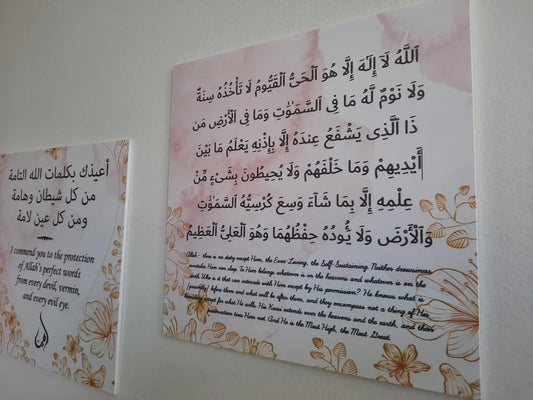 أعيذك بكلمات الله التامة
من كل شيطان وهامة
ومن كل عين لامة
I commend you to the protection
of Allah's perfect words
from every devil, vermin,
and every evil eye.
ٱللَّهُ لَآ إِلَٰهَ إِلَّا هُوَ ٱلْحَىُّ ٱلْقَيُّومُ لَا تَأْخُذُهُۥ سِنَةٌ
وَلَا نَوْمٌ لَّهُۥ مَا فِى ٱلسَّمَٰوَٰتِ وَمَا فِى ٱلْأَرْضِ مَن
ذَا ٱلَّذِى يَشْفَعُ عِندَهُۥٓ إِلَّا بِإِذْنِهِۦ يَعْلَمُ مَا بَيْنَ
أَيْدِيهِمْ وَمَا خَلْفَهُمْ وَلَا يُحِيطُونَ بِشَىْءٍ مِّنْ
عِلْمِهِۦٓ إِلَّا بِمَا شَآءَ وَسِعَ كُرْسِيُّهُ ٱلسَّمَٰوَٰتِ
وَٱلْأَرْضَ وَلَا يَـُٔودُهُۥ حِفْظُهُمَا وَهُوَ ٱلْعَلِىُّ ٱلْعَظِيمُ
Allah - there is no deity except Him, the Ever Living, the Self-Sustaining. Neither drowsiness
overtakes Him nor sleep. To Him belongs whatever is in the heavens and whatever is on the
earth. Who is it that can intercede with Him except by His permission? He knows what is
(presently) before them and what will be after them, and they encompass not a thing of His
knowledge except for what He wills. His Kursi extends over the heavens and the earth, and their
preservation tires Him not. And He is the Most High, the Most Great.